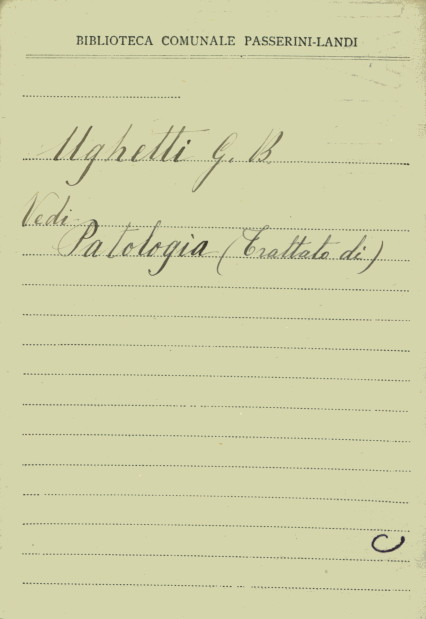 BIBLIOTECA COMUNALE PASSERINI-LANDI
Ughetti G. B.
Vedi
Patologia (Trattato di)
C